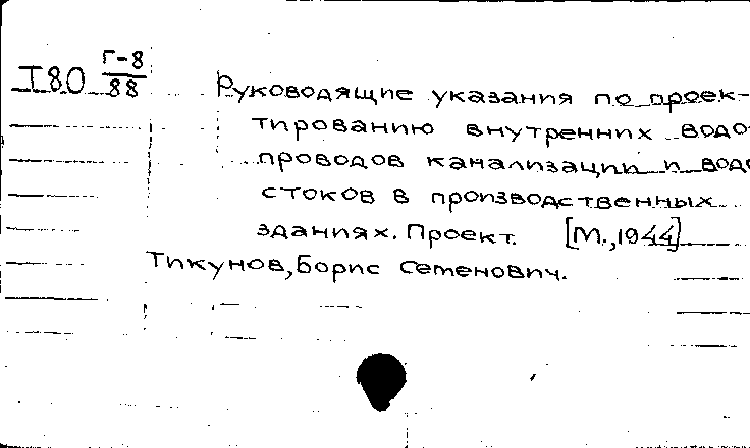 I80 Г-8/88
Руководящие указания по проек-
тированию внутренних водо
проводов канализации и водо
стоков в производственных
зданиях. Проект. [М., 1944]
Тикунов, Борис Семенович.